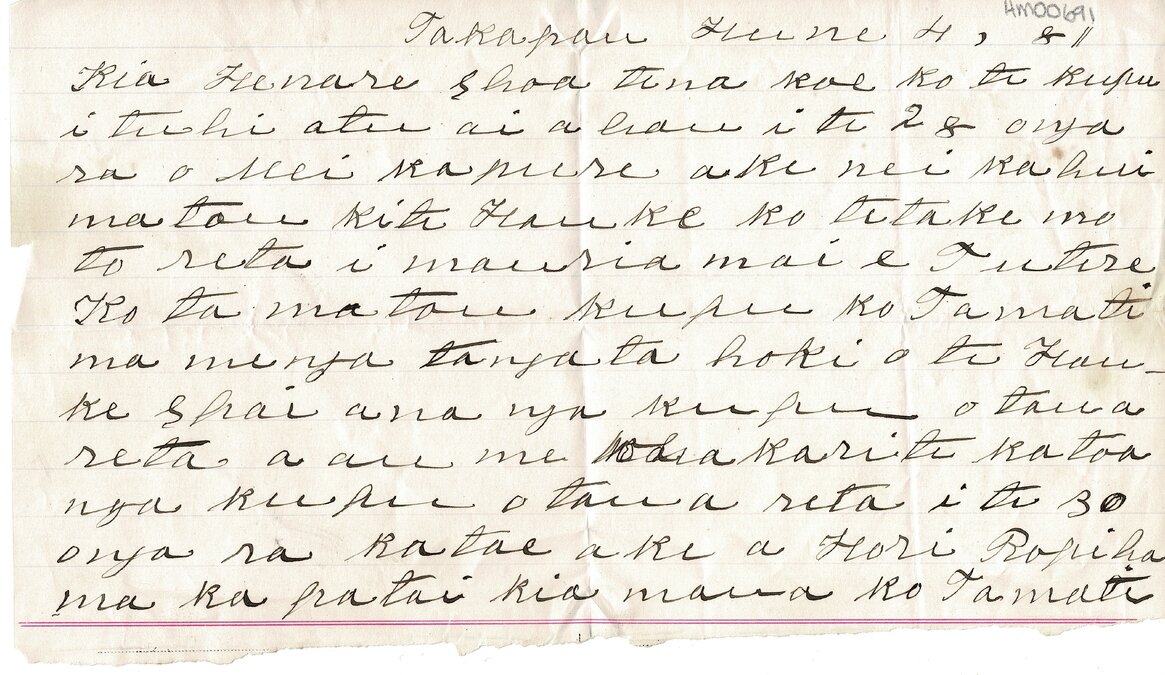 HM00691
Takapau Hune 4, 81
Kia Henare E hoa tena koe ko te kupu
i tuhi atu ai a hau i te 28 o nga
ra o Mei kapure ake nei ka hui
matou kite Hauke ko te take mo
to reta i mauria mai e Tutere
Ko ta matou kupu ko Tamati
ma me nga tangata hoki o te Hau-
ke E pai ana nga kupu o taua
reta a au me whakarite katoa
nga kupu o taua reta i te 30
o nga ra ka tae ake a Hori Ropiha
ma ka patai kia maua ko Tamati